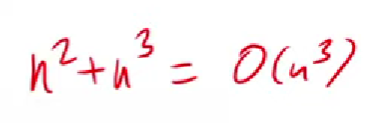 n²+n³ = O(n³)